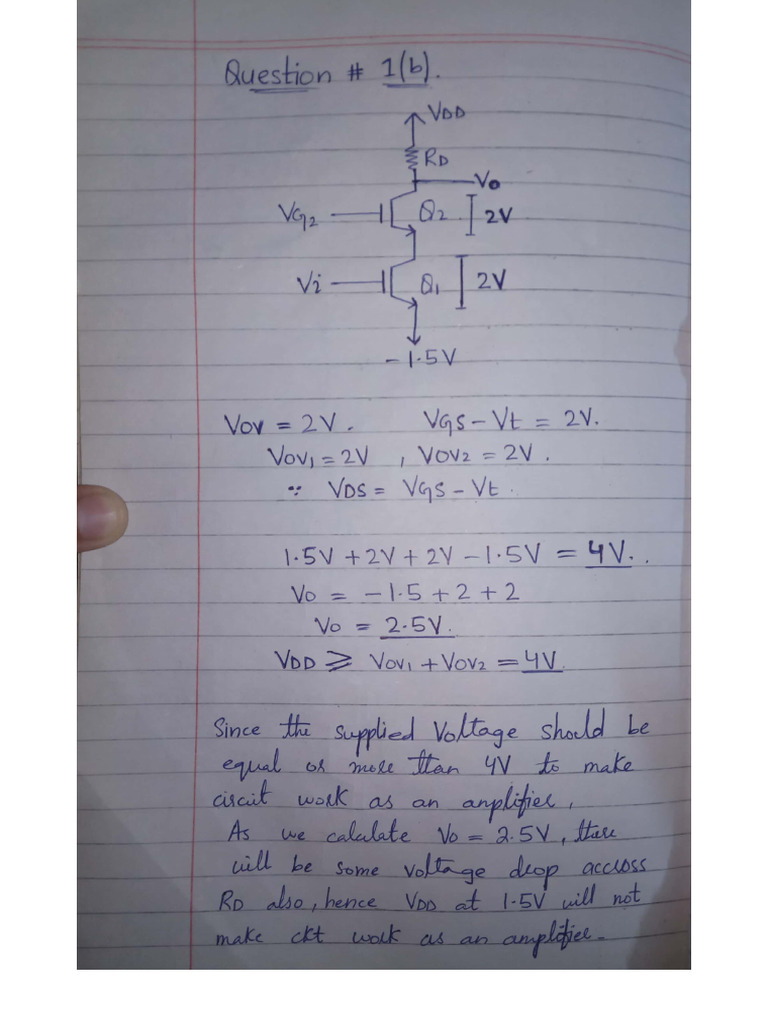 Question # 1(b).
VDD
RD
Vo
VG2
Q2
2V
Vi
Q1
2V
-1.5V
VOV = 2V. VGS-Vt = 2V.
VOV1 = 2V , VOV2 = 2V.
∵ VDS = VGS - Vt.
1.5V + 2V + 2V - 1.5V = 4V.
Vo = -1.5 + 2 + 2
Vo = 2.5V.
VDD ⩾ VOV1 + VOV2 = 4V
Since the supplied Voltage should be
equal or more than 4V to make
circuit work as an amplifier,
As we calculate Vo = 2.5V, there
will be some voltage drop accross
RD also, hence VDD at 1.5V will not
make ckt work as an amplifier.